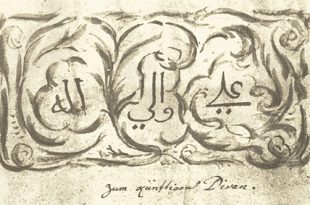 علي الله
zum künftigen Divan.